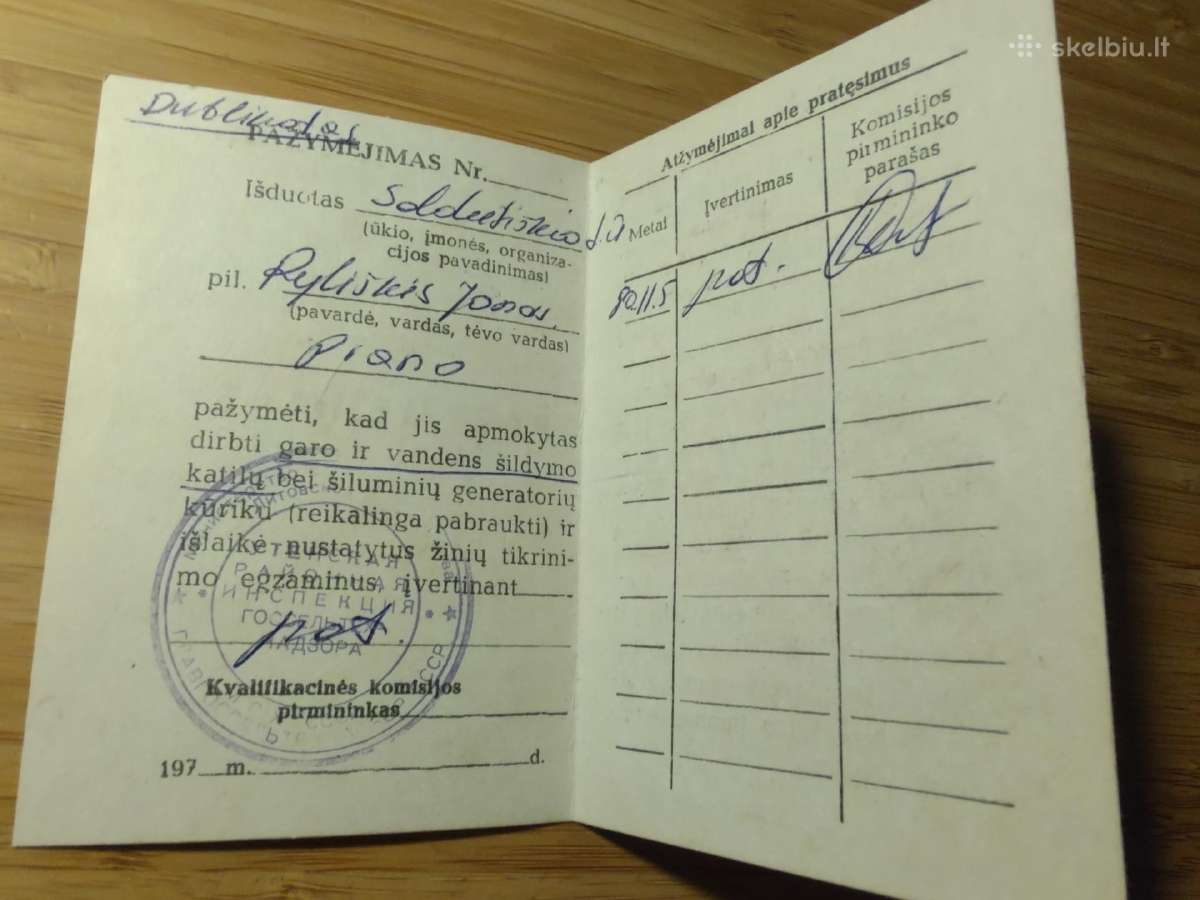 skelbiu.lt
Dublikatas
PAŽYMĖJIMAS Nr.
Išduotas Soldutiškio
(ūkio, įmonės, organiza-
cijos pavadinimas)
pil. Ryliškis Jonas
(pavardė, vardas, tėvo vardas)
Prano
pažymėti, kad jis apmokytas
dirbti garo ir vandens šildymo
katilų bei šiluminių generatorių
kūriku (reikalinga pabraukti) ir
išlaikė nustatytus žinių tikrini-
mo egzaminus, įvertinant
pat.
Kvalifikacinės komisijos
pirmininkas
197 m. d.
УТЕНСКАЯ
РАЙОННАЯ
ИНСПЕКЦИЯ
ГОССЕЛЬТЕХ
НАДЗОРА
Atžymėjimai apie pratęsimus
Metai
Įvertinimas
Komisijos
pirmininko
parašas
80.11.5 pat.